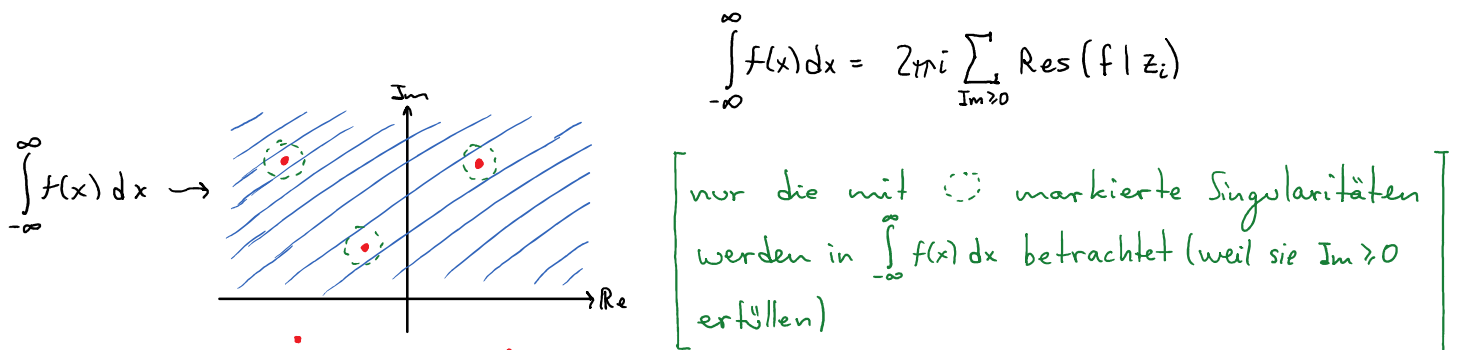 ∫_{-∞}^{∞} f(x) dx = 2πi ∑_{Im≥0} Res(f | z_i)
Im
∫_{-∞}^{∞} f(x) dx →
Re
nur die mit ◌ markierte Singularitäten
werden in ∫_{-∞}^{∞} f(x) dx betrachtet (weil sie Im ≥ 0
erfüllen)